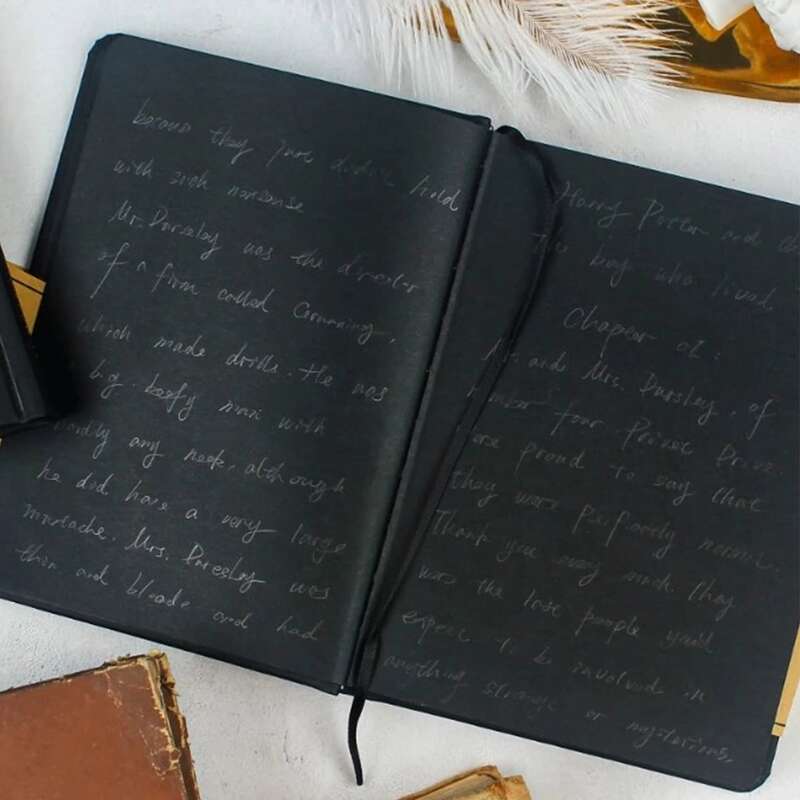 because they just didn't hold
with such nonsense
Mr. Dursley was the director
of a firm called Grunning,
which made drills. He was
big, beefy man with
hardly any neck, although
he did have a very large
mustache. Mrs. Dursley was
thin and blonde and had
Harry Potter and
The boy who lived
Chapter 01:
Mr. and Mrs. Dursley, of
number four Privet Drive,
were proud to say that
they were perfectly normal,
Thank you very much. They
was the last people you'd
expect to be involved in
anything strange or mysterious,